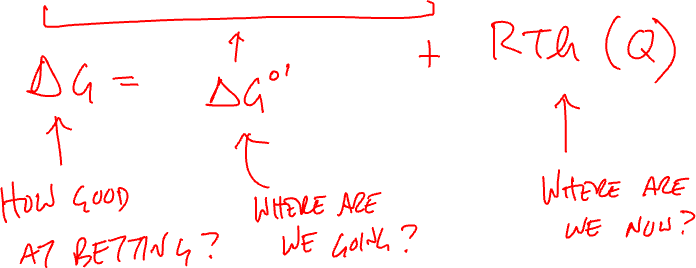 ΔG = ΔG°' + RTln (Q)
HOW GOOD
AT BETTING?
WHERE ARE
WE GOING?
WHERE ARE
WE NOW?